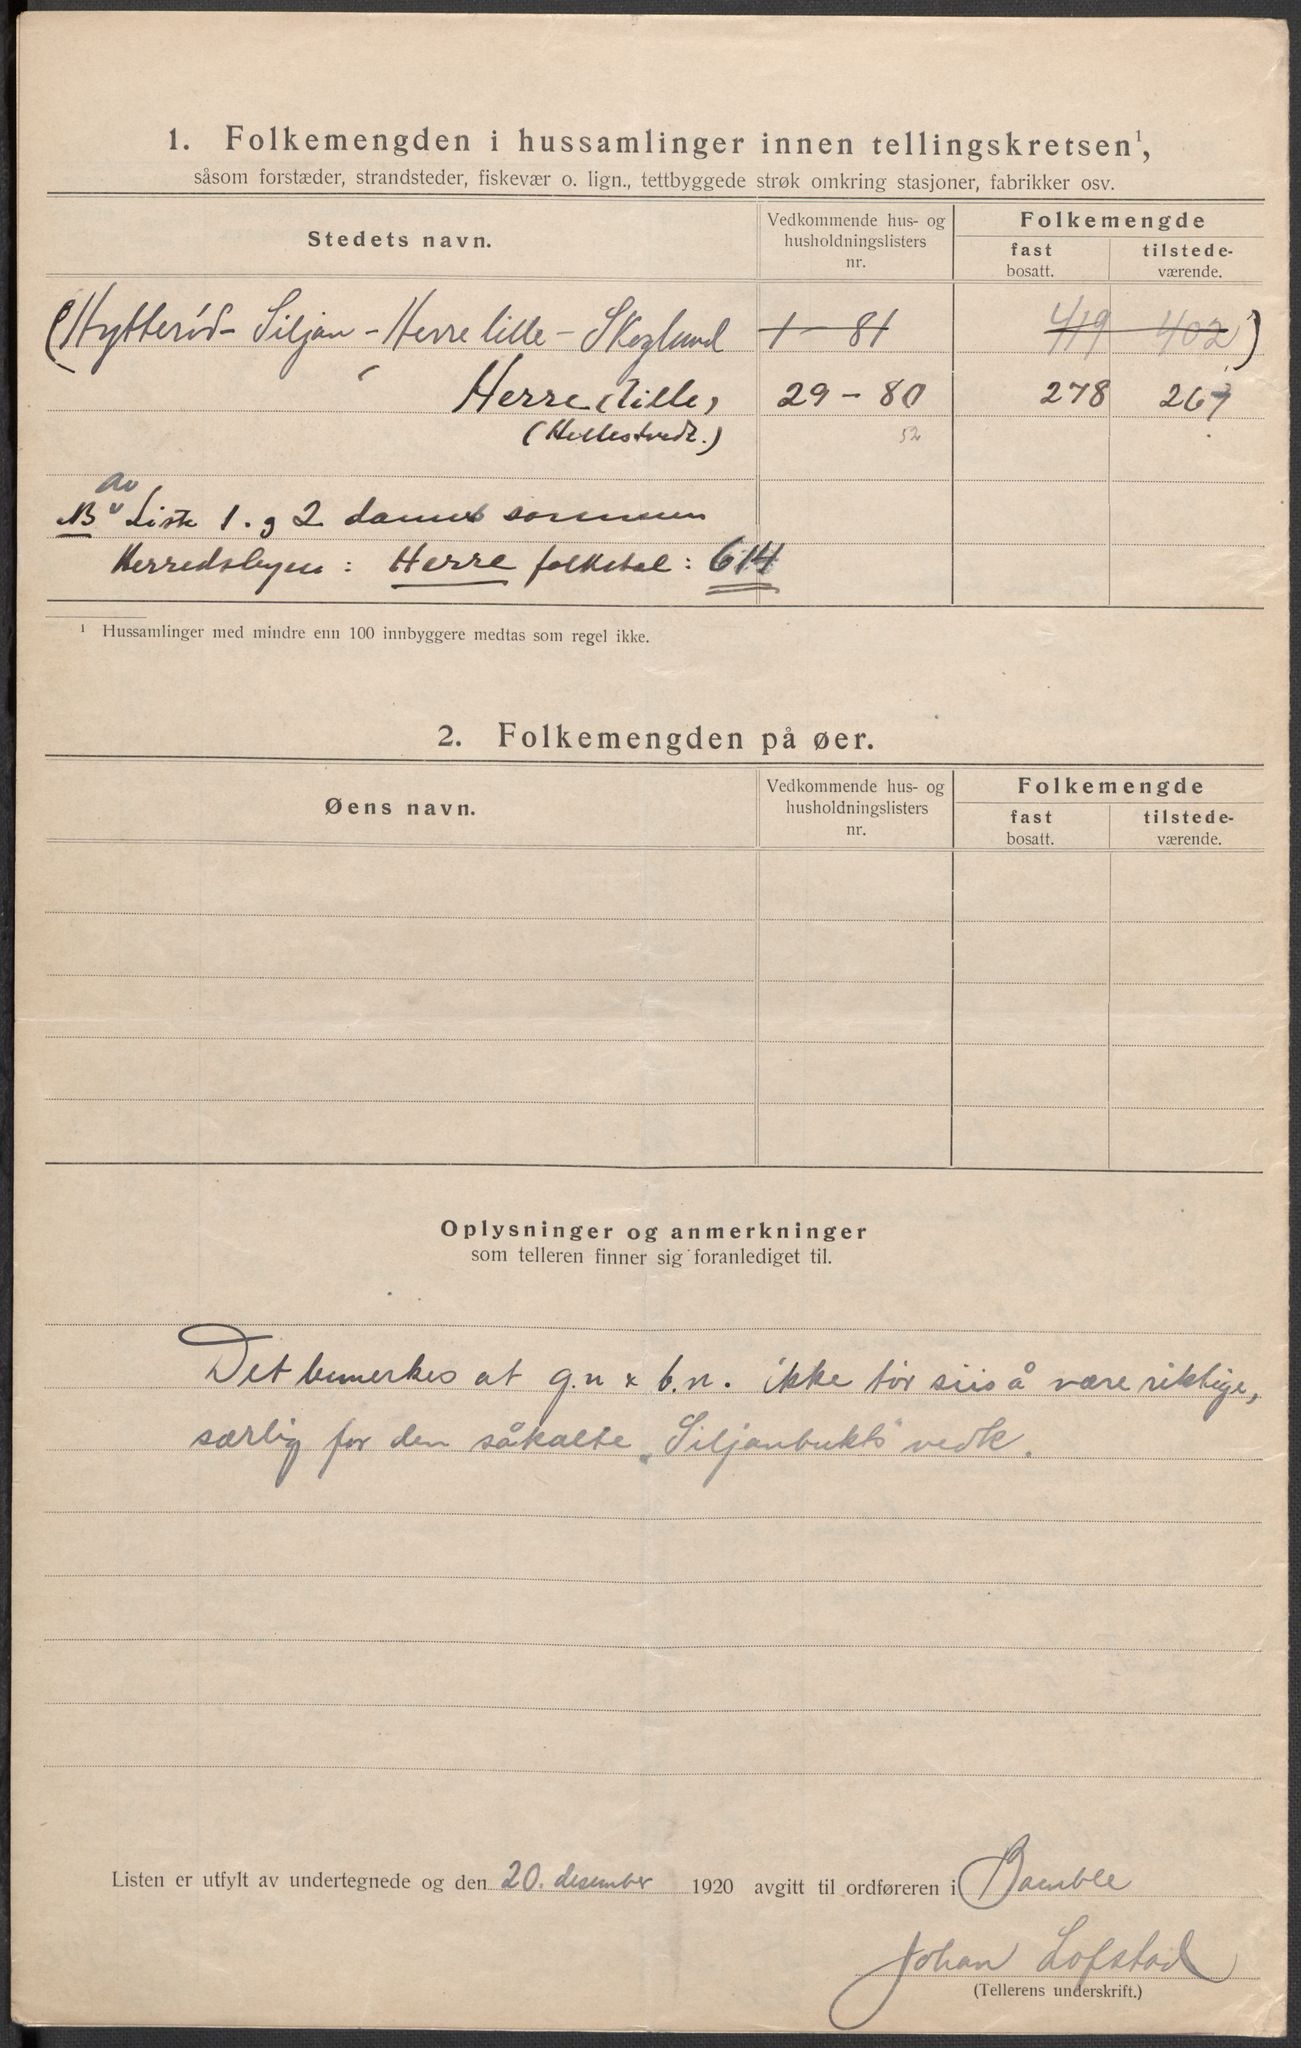 1. Folkemengden i hussamlinger innen tellingskretsen¹,
såsom forstæder, strandsteder, fiskevær o. lign., tettbyggede strøk omkring stasjoner, fabrikker osv.
Stedets navn.
Vedkommende hus- og husholdningslisters nr.
Folkemengde
fast bosatt.
tilstede-værende.
(Hytterød - Siljan - Herre lille - Skoglund 1 - 81 419 402)
Herre (lille, 29 - 80 278 267
52
NB av Liste 1. g 2 sammen
Herredsbyen: Herre folketal: 614
¹ Hussamlinger med mindre enn 100 innbyggere medtas som regel ikke.
2. Folkemengden på øer.
Øens navn.
Vedkommende hus- og husholdningslisters nr.
Folkemengde
fast bosatt.
tilstede-værende.
Oplysninger og anmerkninger
som telleren finner sig foranlediget til.
Det bemerkes at g.n & b.n. ikke tør siis å være riktige,
særlig for den såkalte "Siljanbukts" vedk.
Listen er utfylt av undertegnede og den 20. desember 1920 avgitt til ordføreren i Bamble
Johan Lofstad
(Tellerens underskrift.)